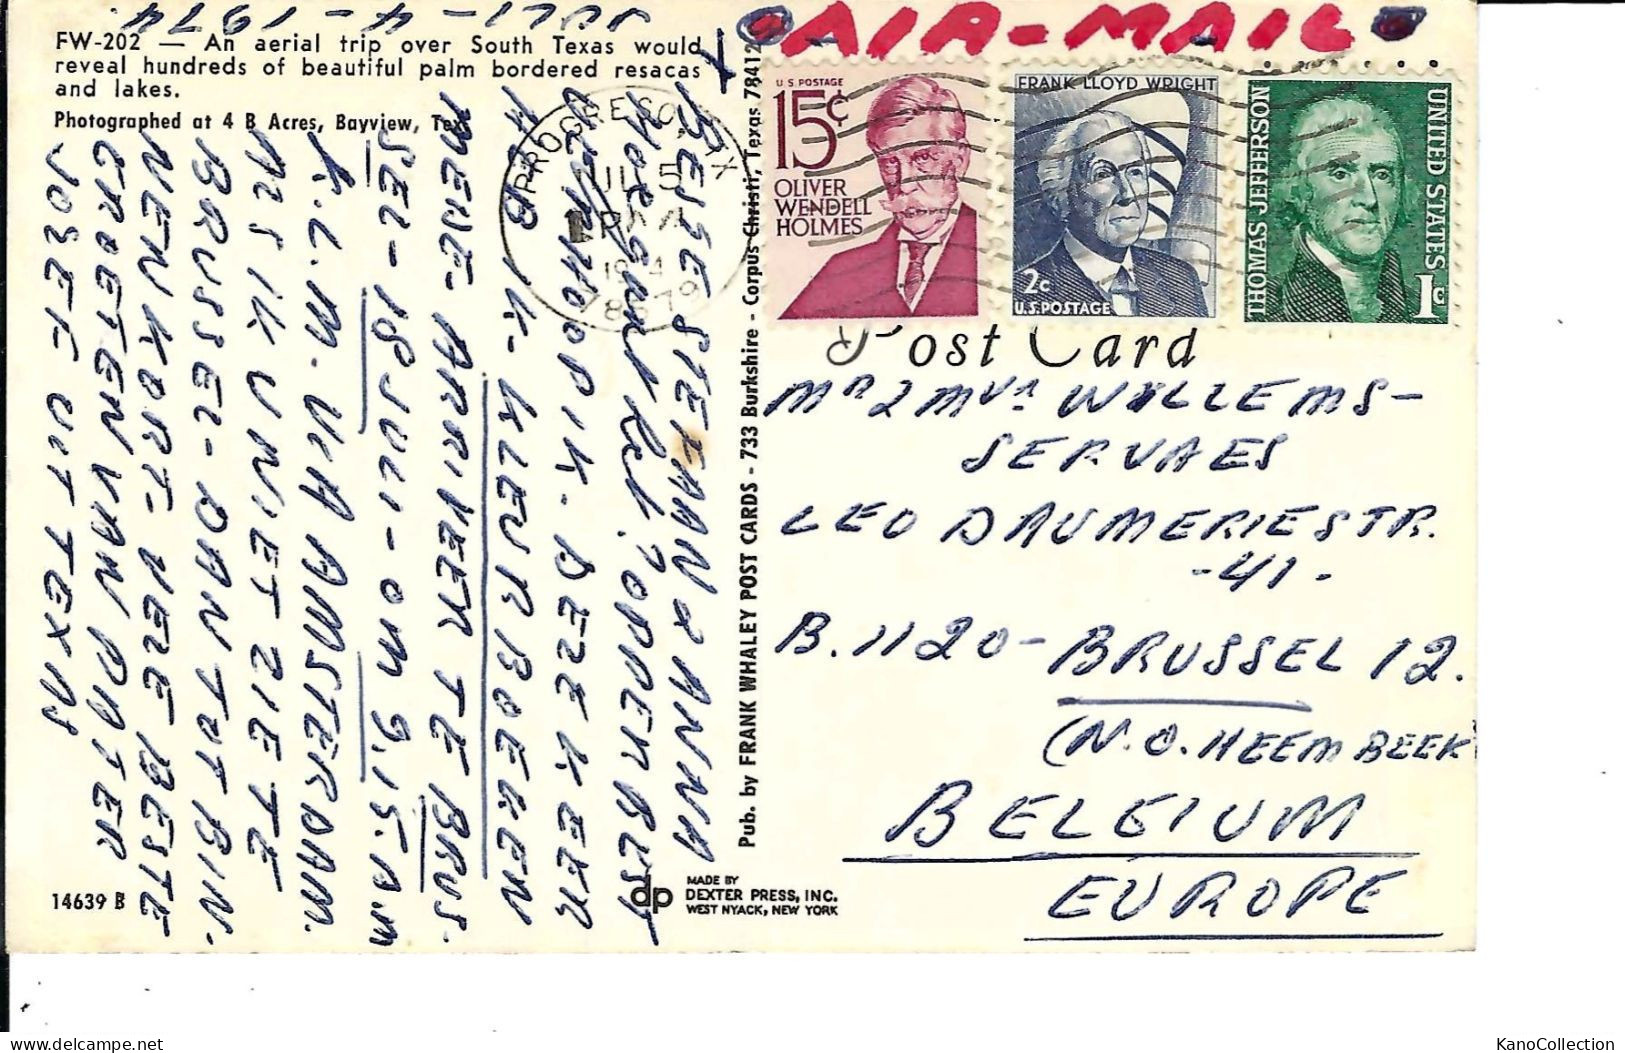 JULI - 4 - 1974.
FW-202 — An aerial trip over South Texas would
reveal hundreds of beautiful palm bordered resacas
and lakes.
Photographed at 4 B Acres, Bayview, Tex
BESTE STEFAAN & ANNA
OPPERBEST
HOOP IK. DEZE KEER
IK. KLEURBOEKEN
MENE. ARRIVEER TE BRUS.
SEL - 18 JULI - OM 9.15. A.M
K.L.M. VIA AMSTERDAM.
ALS IK U NIET ZIE TE
BRUSSEL - DAN TOT BIN.
NENKORT. VELE BESTE
GROETEN VAN PATER
JOSEF UIT TEXAS
14639 B
Pub. by FRANK WHALEY POST CARDS - 733 Burkshire - Corpus Christi, Texas 78412
dp
MADE BY
DEXTER PRESS, INC.
WEST NYACK, NEW YORK
PROGRESO, TX
JUL 5
PM
1974
78579
AIR-MAIL
U.S. POSTAGE
15¢
OLIVER
WENDELL
HOLMES
FRANK LLOYD WRIGHT
2c
U.S. POSTAGE
THOMAS JEFFERSON
UNITED STATES
1c
Post Card
MR & MVR WILLEMS-
SERVAES
LEO DAUMERIESTR.
-41-
B. 1120 - BRUSSEL 12.
(N.O. HEEMBEEK
BELGIUM
EUROPE
KanoCollection